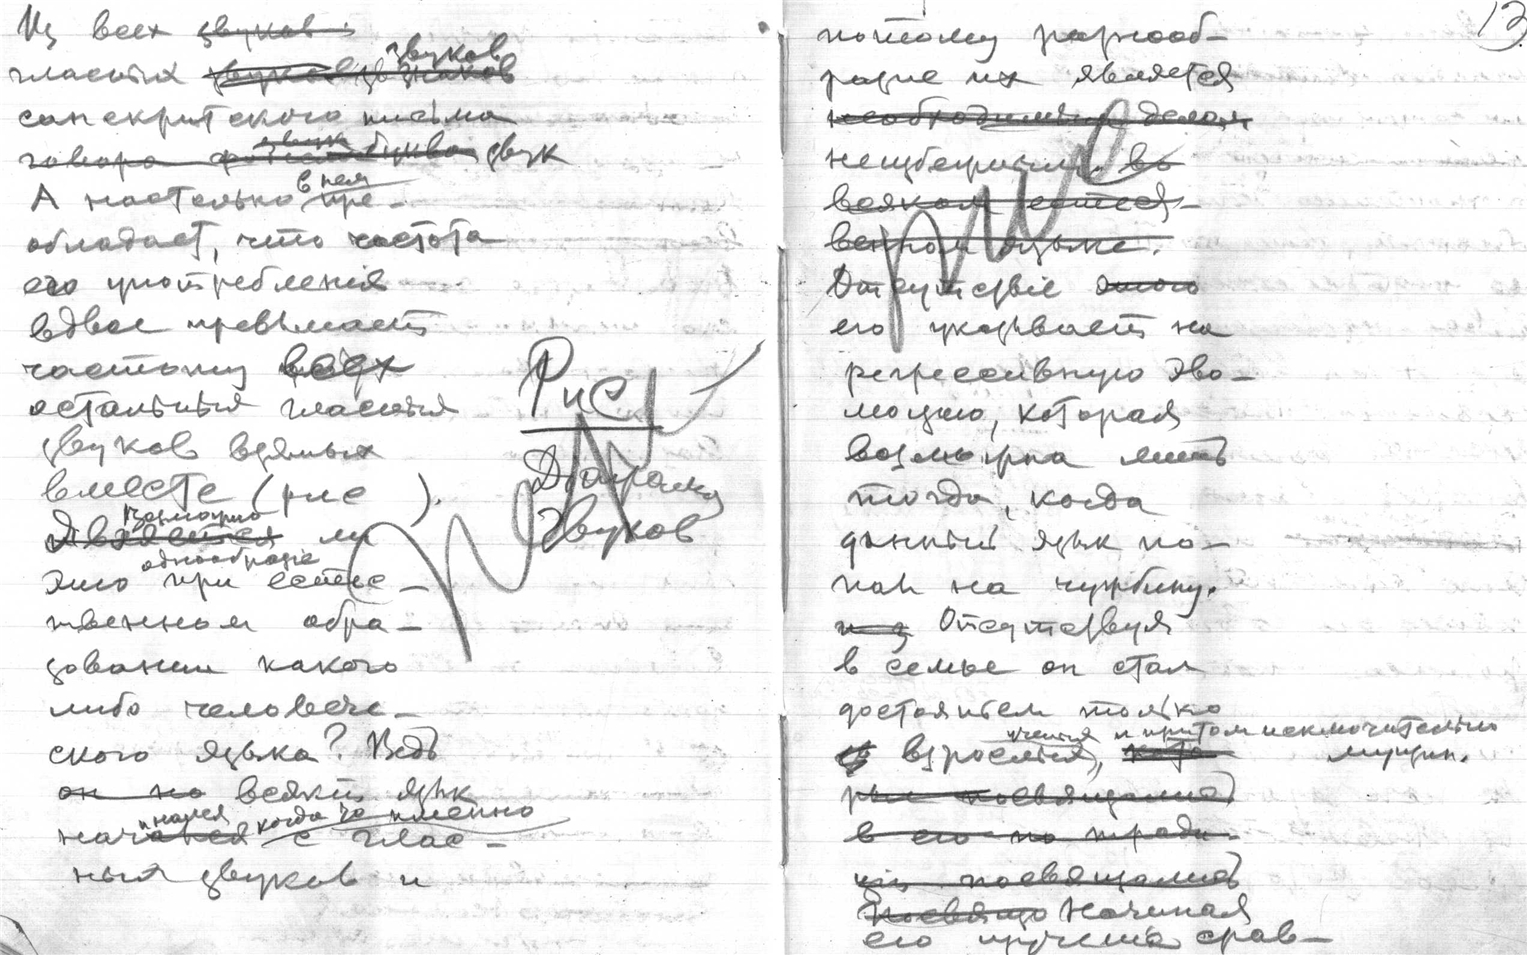 Из всех звуков
гласных звуков знаков звуков
санскритского письма
говора буква звук звук
А настолько в нем пре-
обладает, что частота
его употребления
вдвое превышает
частоту всех
остальных гласных
звуков взятых
вместе (рис ).
Является Возможно ли
однообразие
это при естес-
твенном обра-
зовании какого
либо человече-
ского языка? Ведь
он но всякий язык
начался когда то именно
начался с глас-
ных звуков и
Рис
Диаграмма
Звуков
13
потому разнооб-
разие их является
необходимым делом
неизбежным во
всяком естест-
венном языке.
Отсутствие этого
его указывает на
регрессивную эво-
люцию, которая
возможна лишь
тогда, когда
данный язык по-
пал на чужбину.
из Отсутствуя
в семье он стал
достоянием только
взрослых, и притом исключительно
мужчин.
рые посвящались
в его по тради-
ции посвящались
посвящ Начиная
его изучение срав-